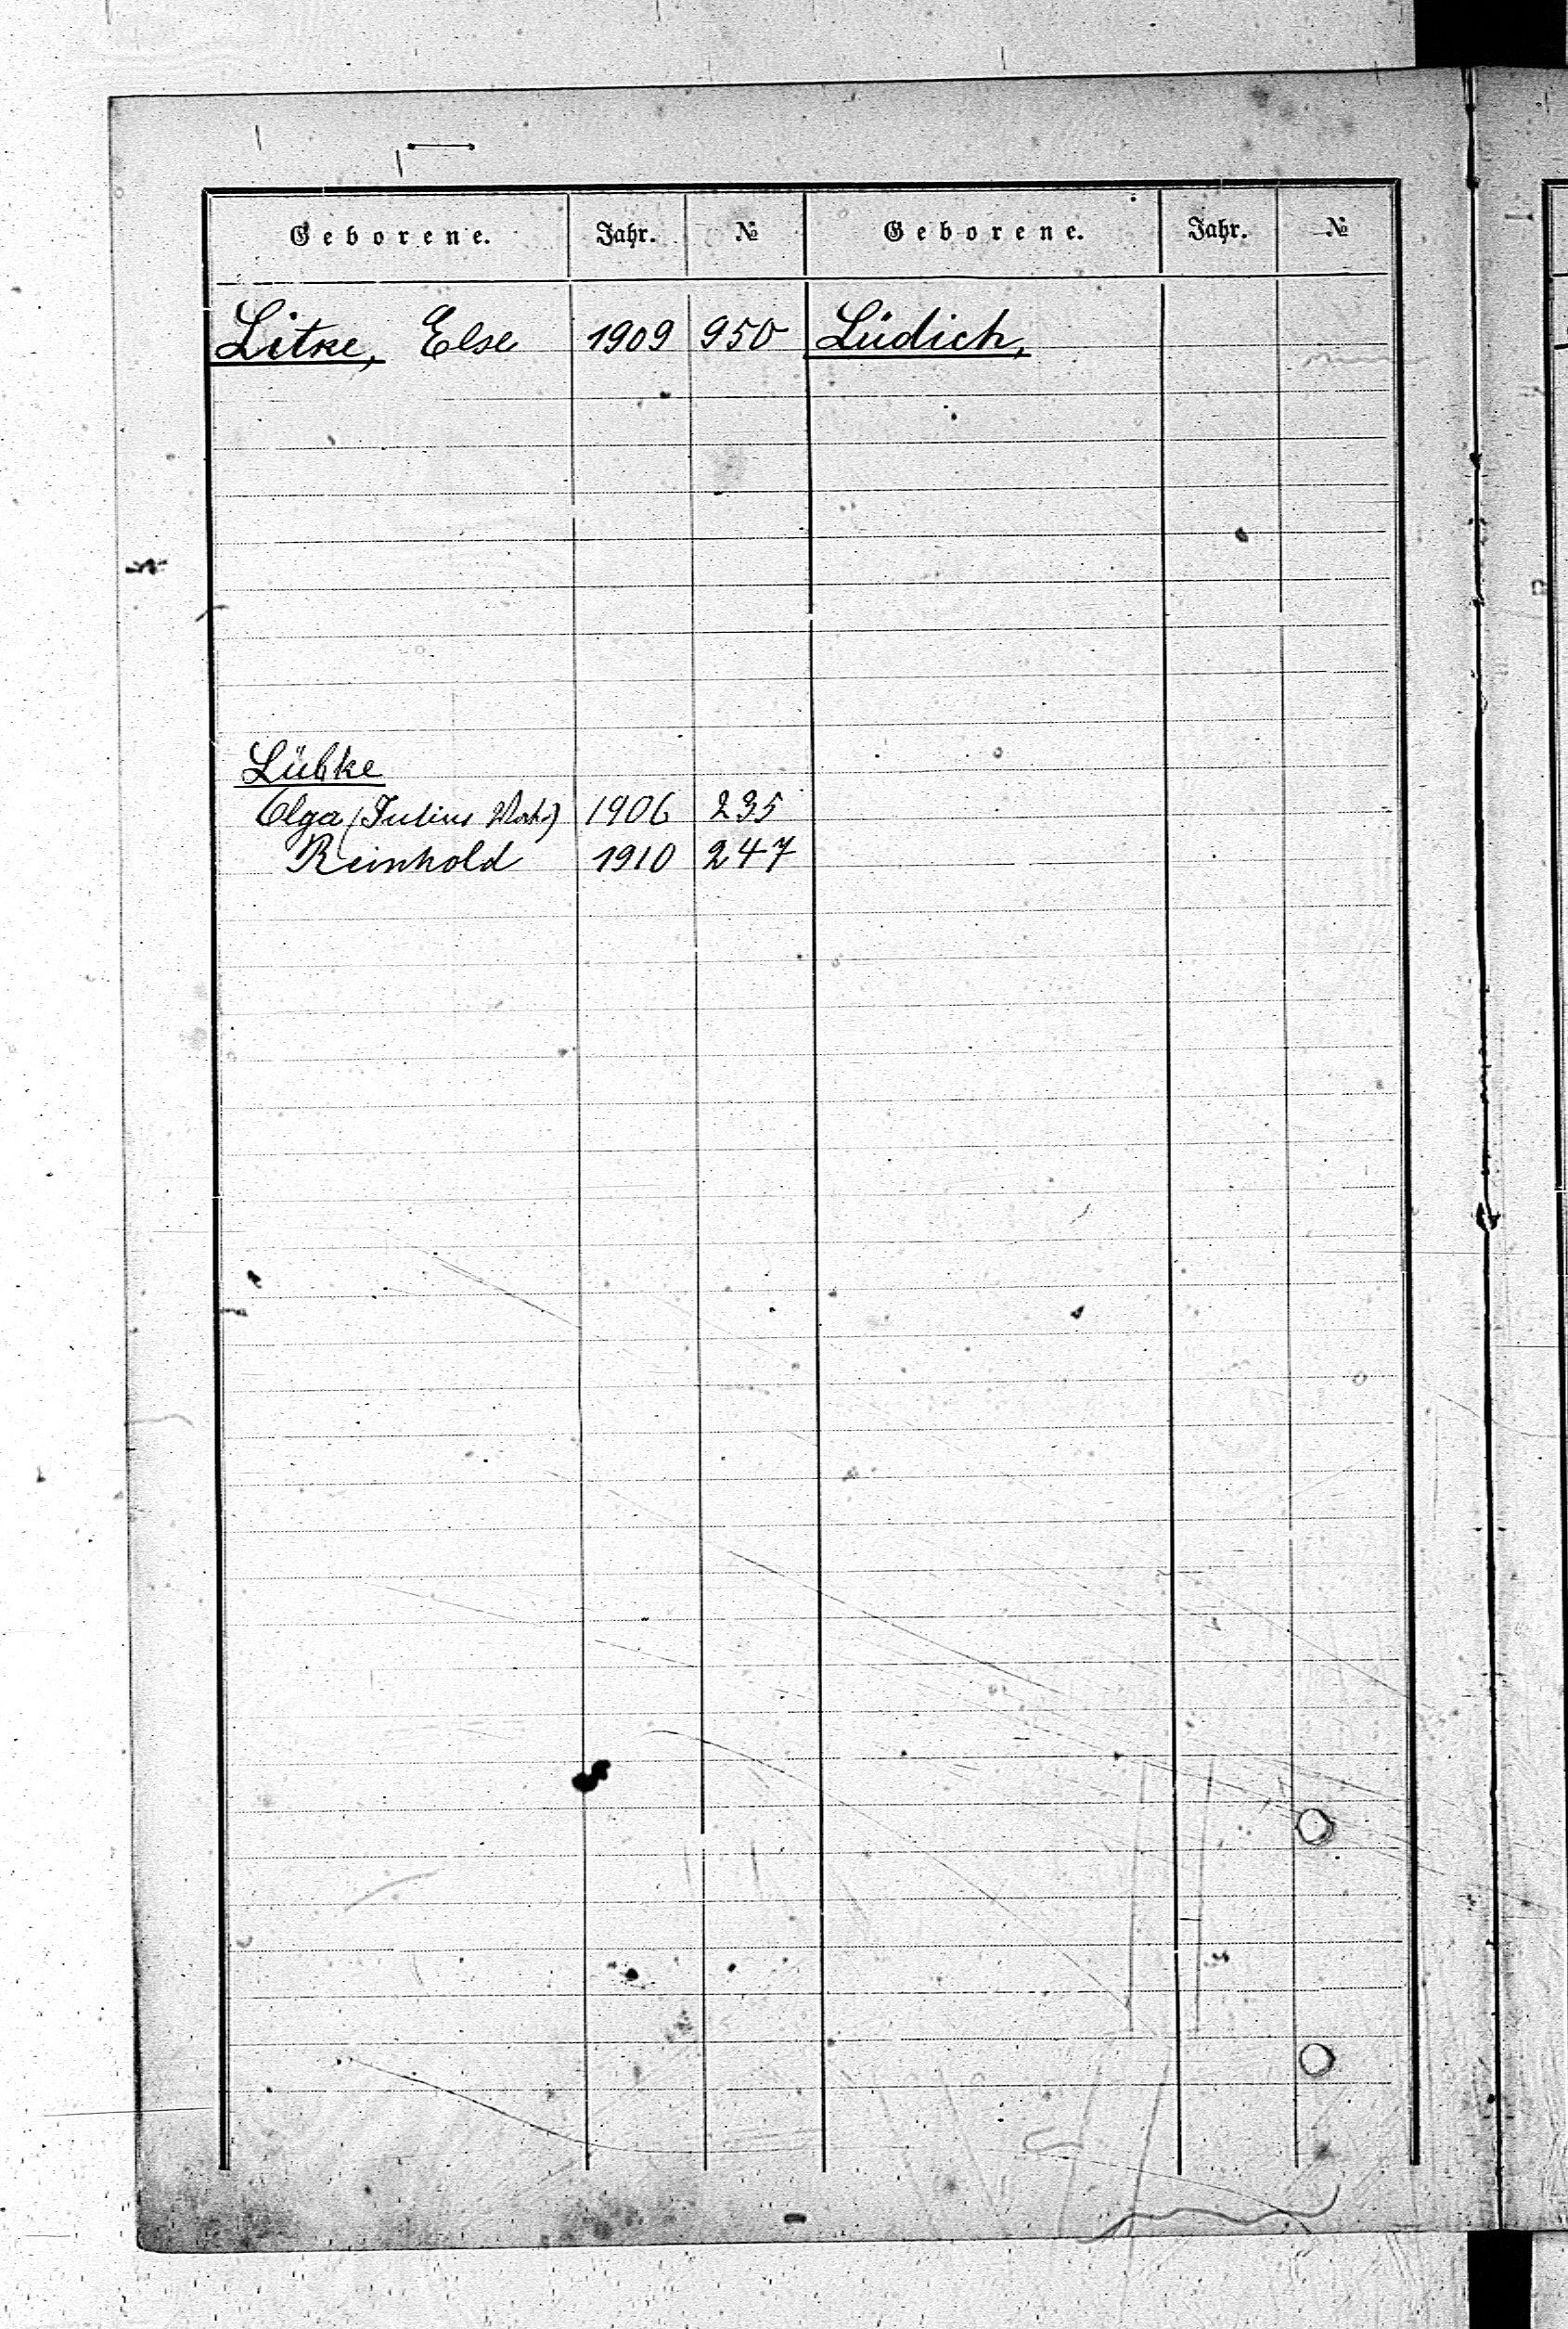 Geborene. Jahr. № Geborene. Jahr. №
Litke, Else 1909 950 Lüdich,
Lübke
Olga (Julius 1906 235
Reinhold 1910 247